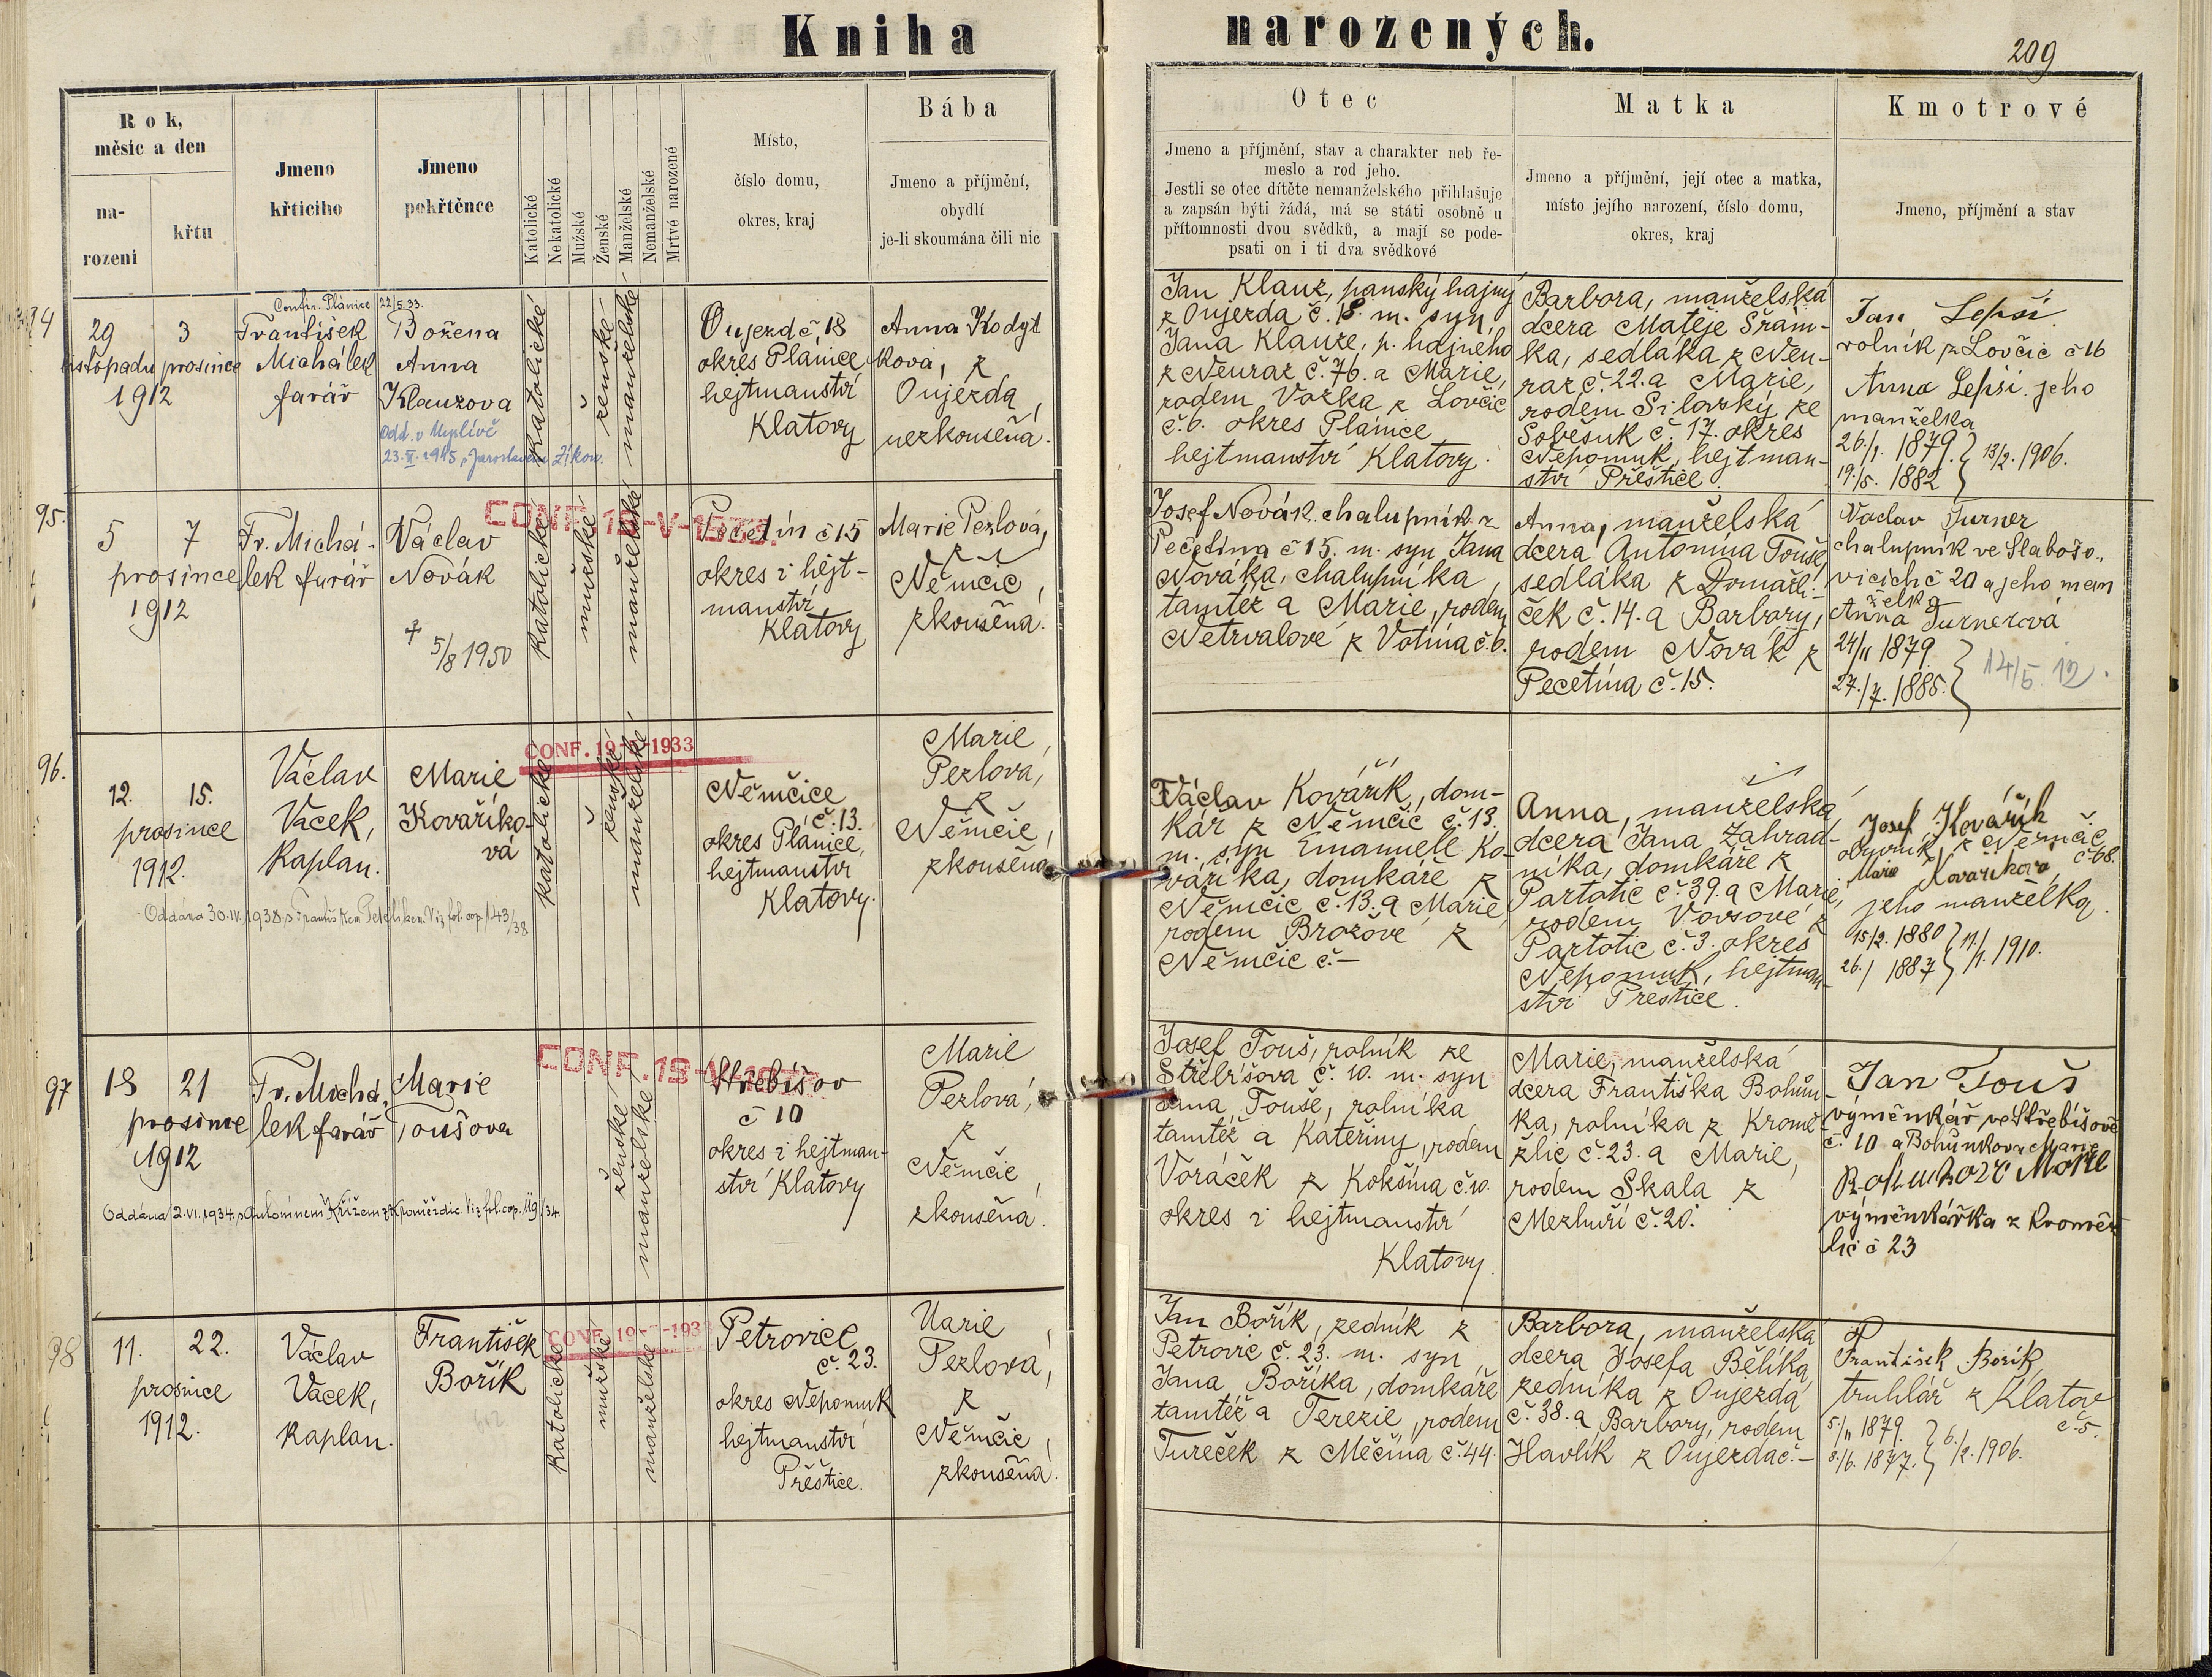 Kniha narozených.
209
Rok,
měsic a den
na-
rozeni
křtu
Jmeno
křticiho
Jmeno
pokřtěnce
Katolické
Nekatolické
Mužské
Ženské
Manželské
Nemanželské
Mrtvé narozené
Místo,
číslo domu,
okres, kraj
Bába
Jmeno a příjmění,
obydlí
je-li skoumána čili nic
Otec
Jmeno a příjmění, stav a charakter neb ře-
meslo a rod jeho.
Jestli se otec dítěte nemanželského přihlašuje
a zapsán býti žádá, má se státi osobně u
přítomnosti dvou svědků, a mají se pode-
psati on i ti dva svědkové
Matka
Jmeno a příjmění, její otec a matka,
místo jejího narození, číslo domu,
okres, kraj
Kmotrové
Jmeno, příjmění a stav
94
29
listopadu
1912
3
prosince
Confir. Plánice 22/5.33.
František
Michálek
farář
Božena
Anna
Klauzova
Odd. v Myslívě
23. 1945 s Jaroslavem Žíkou.
katolické
ženské
manželské
Oujezd č 18
okres Plánice
hejtmanství
Klatovy
Anna Kodyt
ková, z
Oujezda,
nezkoušená.
Jan Klauz, panský hajný
z Oujezda č. 18. m. syn
Jana Klauze, p. hajného
z Neuraz č. 76. a Marie,
rodem Vožka z Lovčic
č. 6. okres Plánice
hejtmanství Klatovy.
Barbora, manželská
dcera Matěje Šrám-
ka, sedláka z Neu-
raz č. 22. a Marie,
rodem Silovský ze
Soběsuk č. 17. okres
Nepomuk, hejtman-
ství Přeštice.
Jan Lepší
rolník z Lovčic č 16
Anna Lepší jeho
manželka
26/1. 1879. } 13/2. 1906.
19./5. 1882
95.
5 7
prosince
1912
Fr. Michá-
lek farář
Václav
Novák
† 5/8 1950
katolické
mužské
manželské
CONF. 19-V-1933.
Pečetín č 15
okres i hejt-
manství
Klatovy
Marie Pezlová,
z
Němčic,
zkoušená.
Josef Novák chalupník z
Pečetína č 15. m. syn Jana
Nováka, chalupníka
tamtéž a Marie, rodem
Netrvalové z Votína č. 6.
Anna, manželská
dcera Antonína Touše,
sedláka z Domažli-
ček č. 14. a Barbory,
rodem Novák z
Pečetína č. 15.
Václav Turner
chalupník ve Slabošo-
vicích č 20 a jeho man
želka
Anna Turnerová
24/11 1879
27./7. 1885. } 14/5 12.
96.
12. 15.
prosince
1912.
Václav
Vacek,
kaplan.
Marie
Kovaříko-
vá
Oddána 30.IV.1938 s
Viz fol cop. 143/38
katolické
ženské
manželské
CONF. 19-V-1933
Němčice
č. 13.
okres Plánice,
hejtmanství
Klatovy.
Marie
Pezlova,
z
Němčic,
zkoušená
Václav Kovářík, dom-
kář z Němčic č. 13.
m. syn Emanuele Ko-
váříka, domkáře z
Němčic č. 13. a Marie,
rodem Brožové z
Němčic č. –
Anna, manželská
dcera Jana Zahrad-
níka, domkáře z
Partotic č. 39. a Marie,
rodem Vovsové z
Partotic č. 3. okres
Nepomuk, hejtman-
ství Přeštice.
Josef Kovářík
obuvník z Němčic
č. 68.
Marie Kovaříkova
jeho manželka.
15/2. 1880 } 11./1. 1910.
26./ 1887
97
18 21
prosince
1912
Fr. Michá-
lek farář
Marie
Toušova
Oddána 2.VI.1934 s Antonínem Křížem z Kroměždic. Viz fol. cop. 119/34
ženské
manželské
CONF. 19-V-1933
Střebišov
č 10
okres i hejtman-
ství Klatovy
Marie
Pezlová,
z
Němčic,
zkoušená.
Josef Touš, rolník ze
Střebíšova č. 10. m. syn
Jana Touše, rolníka
tamtéž a Kateřiny, rodem
Voráček z Kokšína č. 10.
okres i hejtmanství
Klatovy.
Marie, manželská
dcera Františka Bohůn-
ka, rolníka z Kromě-
žlic č. 23. a Marie,
rodem Skala z
Mezhuří č. 20.
Jan Touš
výměnkář ve Střebíšově
č. 10 a Bohůnkova Marie
Bohunkova Marie
výměnkářka z Kroměž
lic č 23
98
11. 22.
prosince
1912.
Václav
Vacek,
kaplan.
František
Bořík
katolické
mužské
manželské
CONF. 19-V-1933
Petrovice
č. 23.
okres Nepomuk
hejtmanství
Přeštice.
Marie
Pezlova,
z
Němčic,
zkoušená.
Jan Bořík, zedník z
Petrovic č. 23. m. syn
Jana Boříka, domkáře
tamtéž a Terezie, rodem
Tureček z Měčína č. 44.
Barbora, manželská
dcera Josefa Bělíka,
zedníka z Oujezda
č. 38. a Barbory, rodem
Havlík z Oujezda č. –
František Bořík
truhlář z Klatov
č. 5.
5./11 1879. } 6./2. 1906.
8./6. 1877.